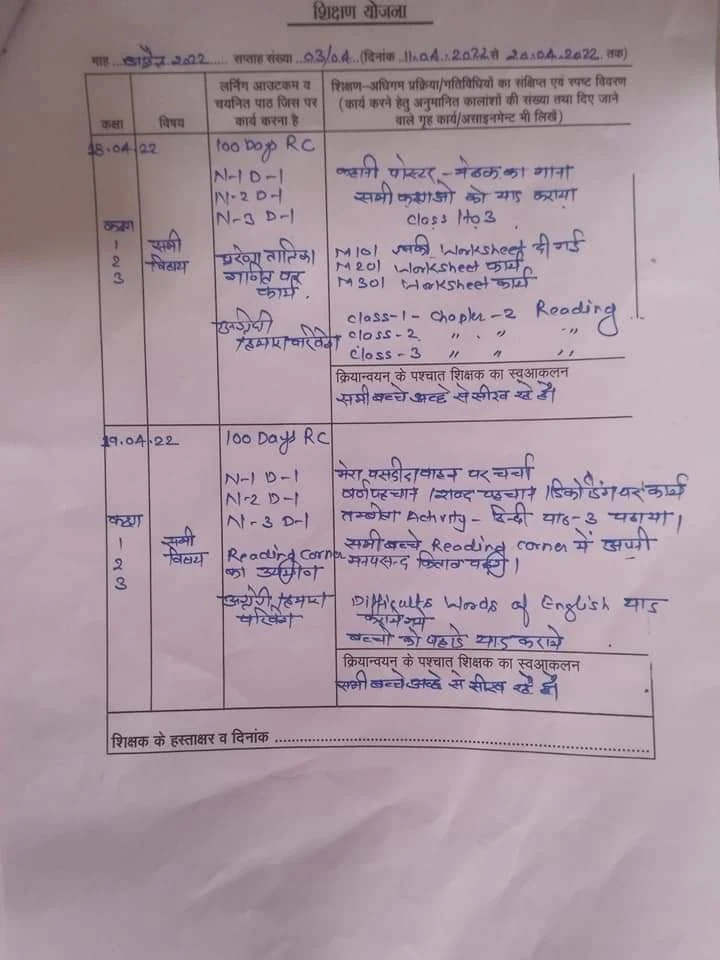 शिक्षण योजना
माह अप्रैल 2022 सप्ताह संख्या 03/04 (दिनांक 11.04.2022 से 20.04.2022 तक)
कक्षा
विषय
लर्निग आउटकम व
चयनित पाठ जिस पर
कार्य करना है
शिक्षण–अधिगम प्रक्रिया/गतिविधियों का संक्षिप्त एवं स्पष्ट विवरण
(कार्य करने हेतु अनुमानित कालांशों की संख्या तथा दिए जाने
वाले गृह कार्य/असाइनमेन्ट भी लिखें)
18.04.22
कक्षा
1
2
3
सभी
विषय
100 Days RC
N-1 D-1
N-2 D-1
N-3 D-1
तालिका
गणित पर
कार्य
कहानी पोस्टर - मेढक का गाना
सभी कक्षाओ को याद कराया
Class 1 to 3
M101 Worksheet दी गई
M201 Worksheet कार्य
M301 Worksheet कार्य
Class-1 - Chapter-2 Reading
Class-2 " " "
Class-3 " " "
क्रियान्वयन के पश्चात शिक्षक का स्वआकलन
सभी बच्चे अच्छे से सीख रहे है।
19.04.22
कक्षा
1
2
3
सभी
विषय
100 Days RC
N-1 D-1
N-2 D-1
N-3 D-1
Reading Corner
का उपयोग
मेरा पसंदीदा वाहन पर चर्चा
वर्ण पहचान / शब्द पहचान / डिकोडिंग पर कार्य
Activity - हिन्दी पाठ-3 पढाया।
सभी बच्चे Reading corner में अपनी
मनपसन्द किताब
Difficults Words of English याद
कराये गये
बच्चो को पहाडे याद कराये
क्रियान्वयन के पश्चात शिक्षक का स्वआकलन
सभी बच्चे अच्छे से सीख रहे है।
शिक्षक के हस्ताक्षर व दिनांक